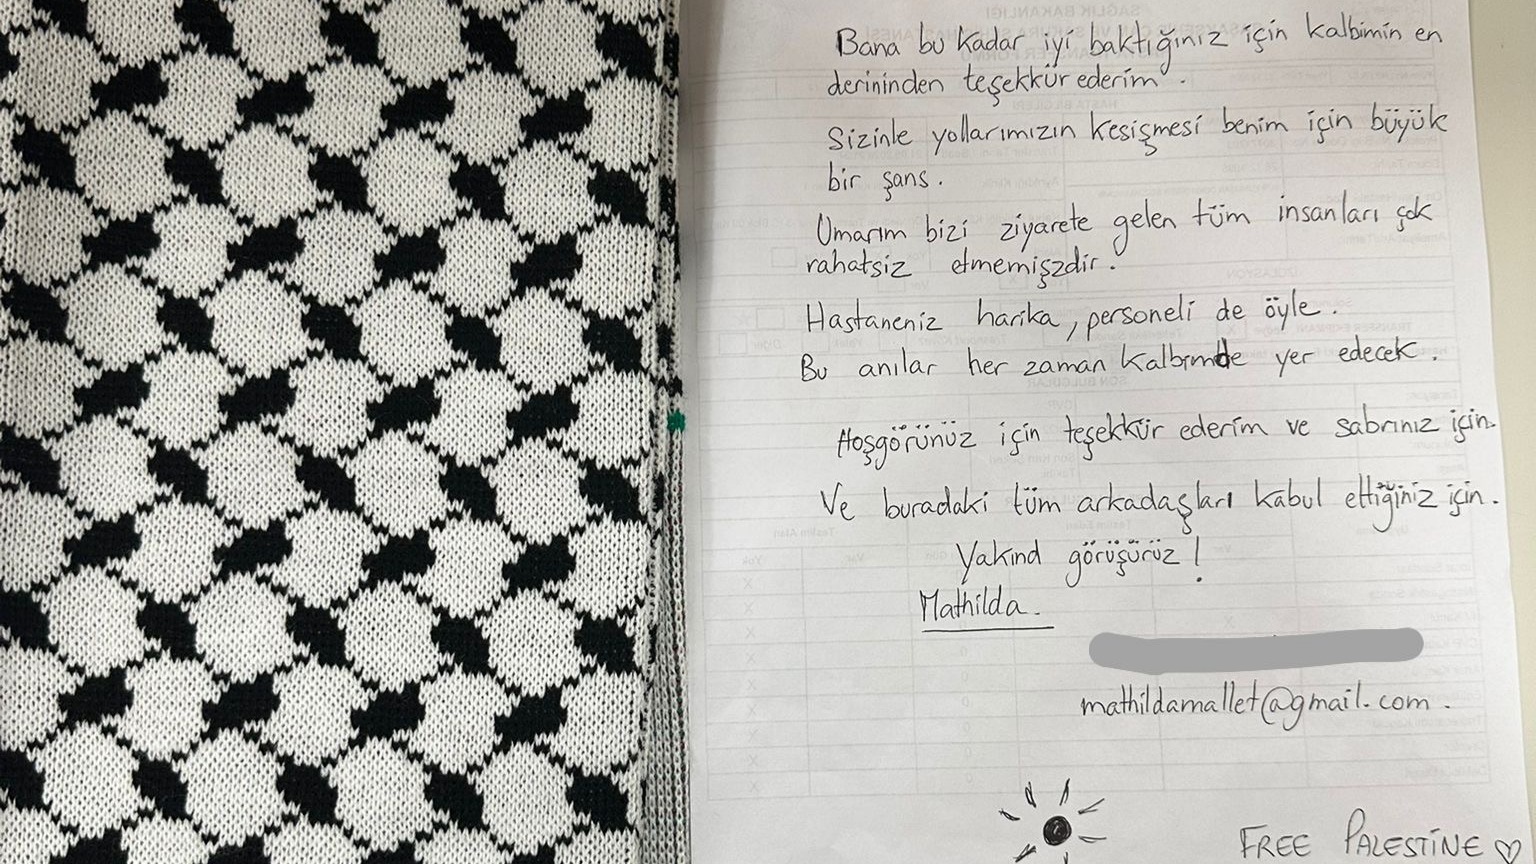 Bana bu kadar iyi baktığınız için kalbimin en
derininden teşekkür ederim.
Sizinle yollarımızın kesişmesi benim için büyük
bir şans.
Umarım bizi ziyarete gelen tüm insanları çok
rahatsiz etmemişzdir.
Hastaneniz harika, personeli de öyle.
Bu anılar her zaman kalbimde yer edecek.
Hoşgörünüz için teşekkür ederim ve sabrınız için.
Ve buradaki tüm arkadaşları kabul ettiğiniz için.
Yakınd görüşürüz!
Mathilda.
mathildamallet@gmail.com.
FREE PALESTİNE ♡